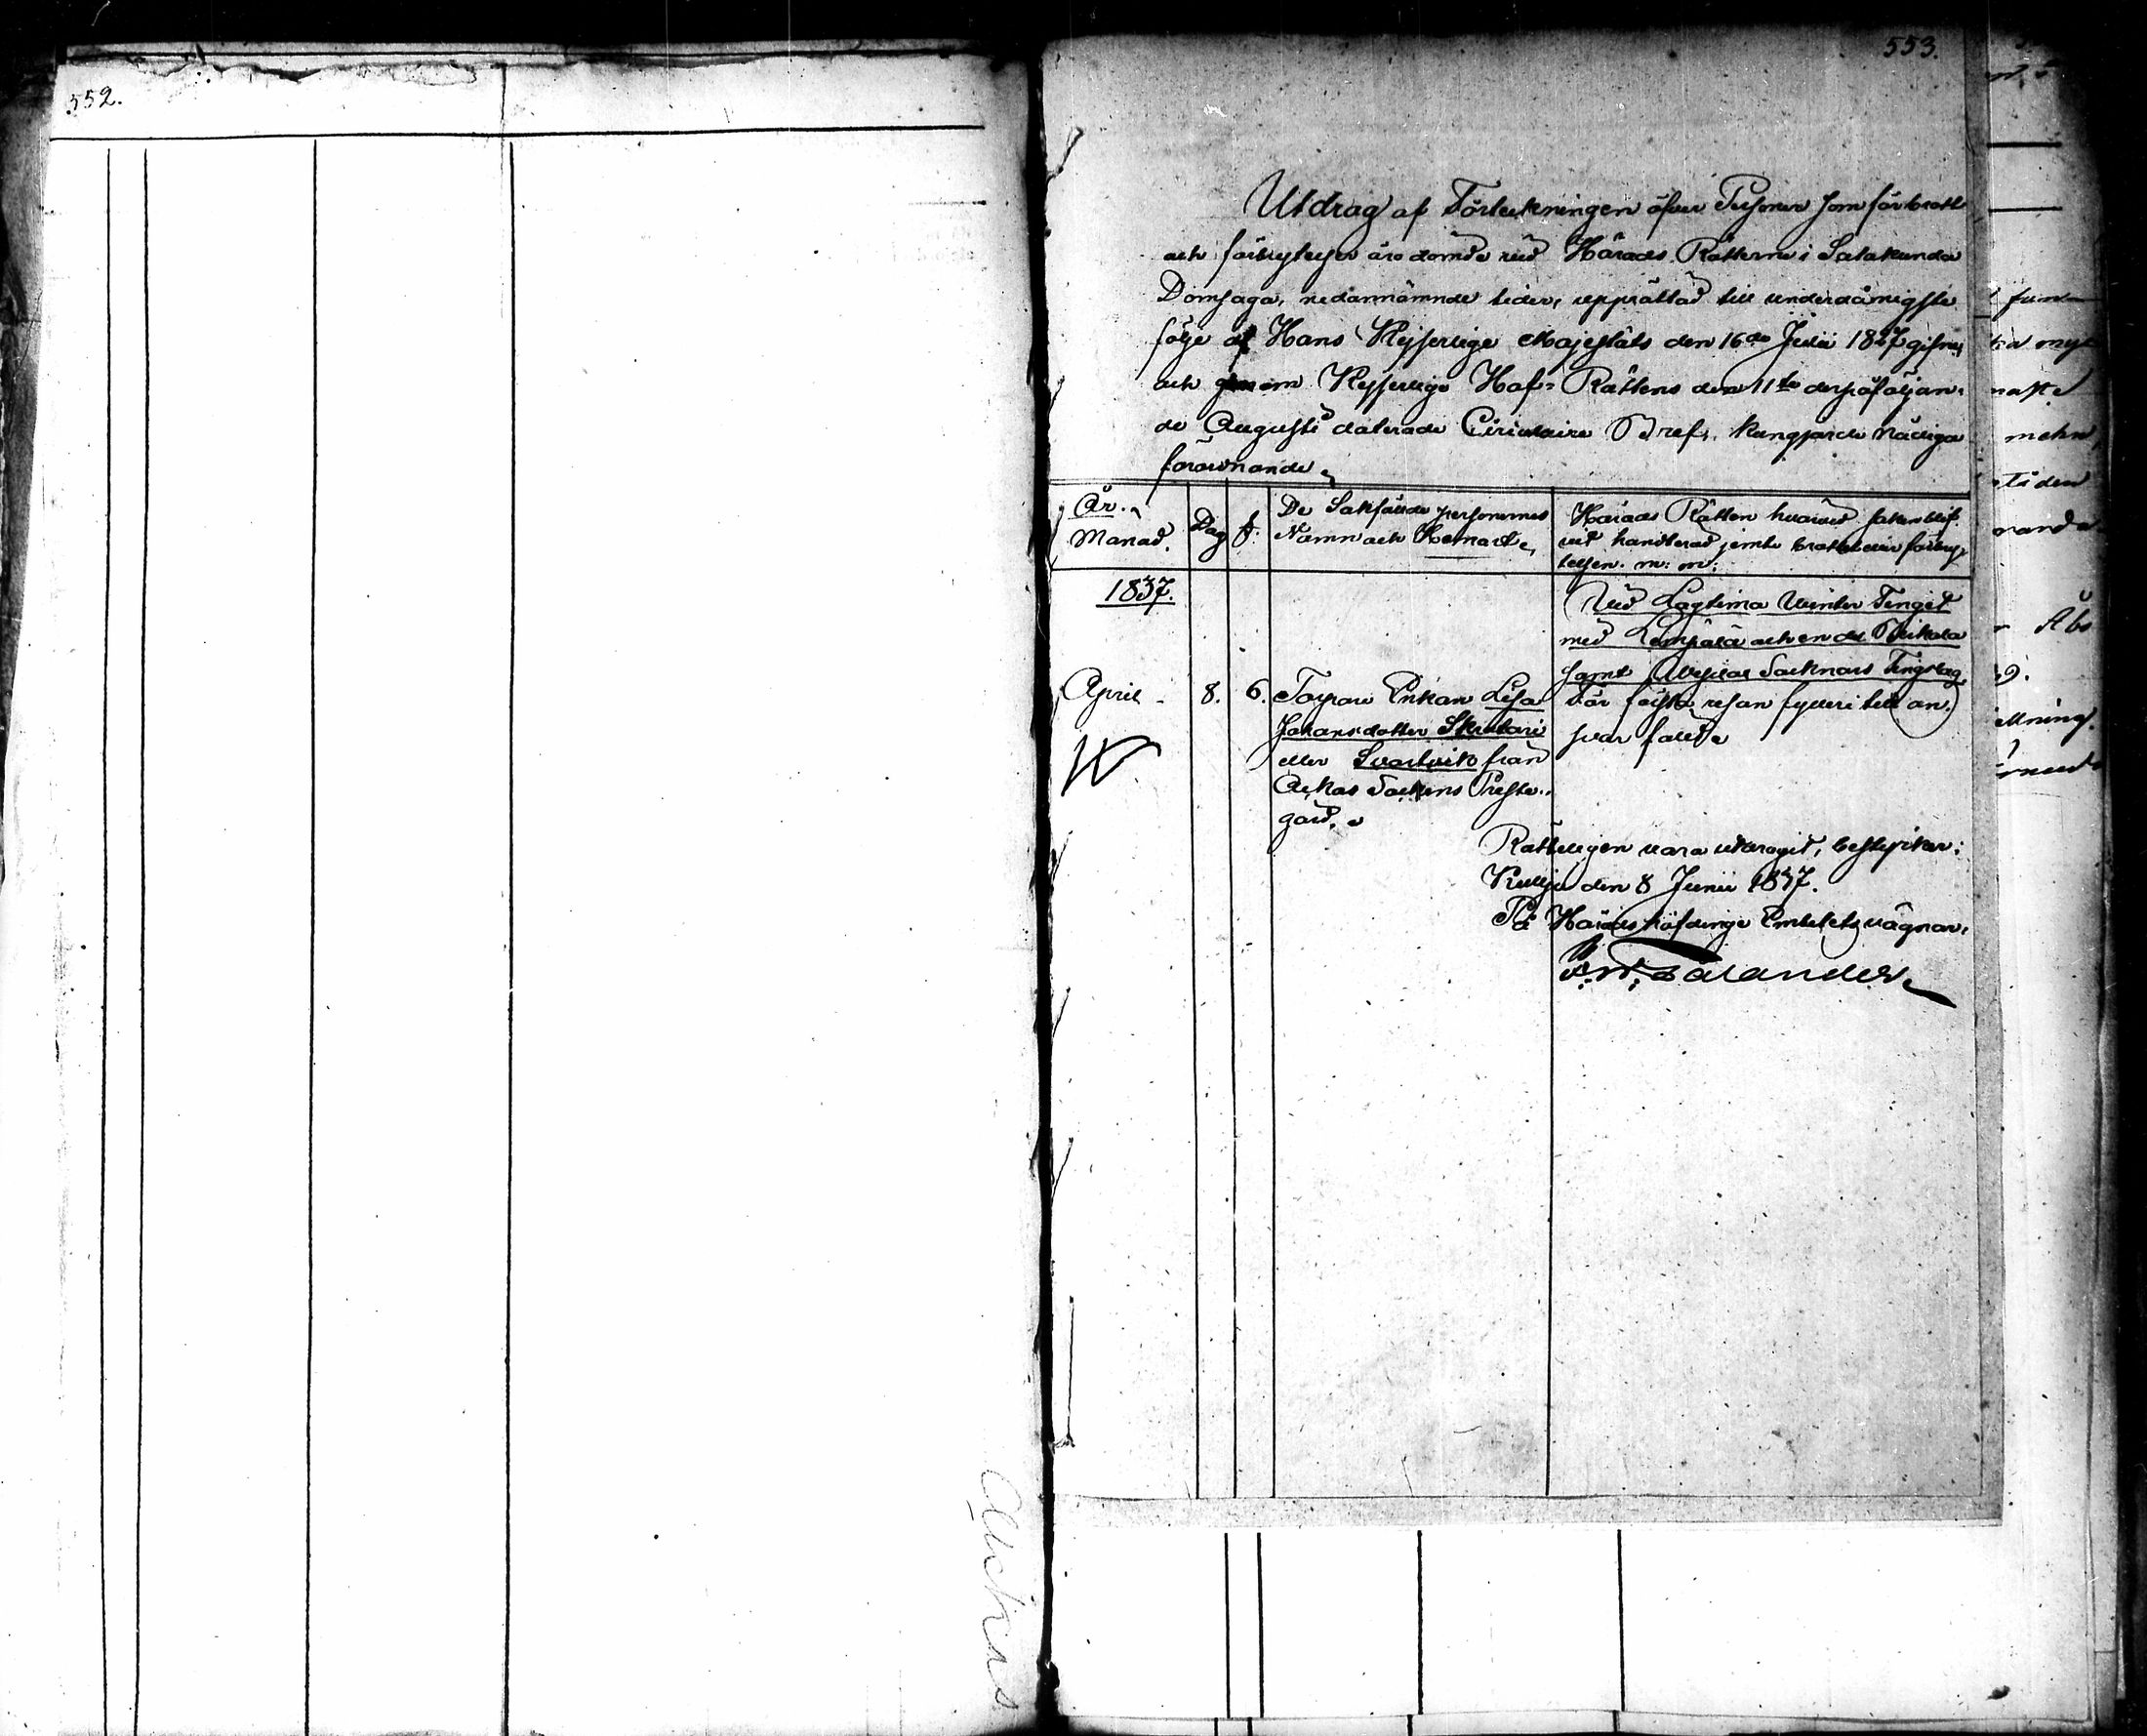 552.
Ackas
553.
Utdrag af Förteckningen öfver Personer som för brott
och förbrytelser äro dömde vid Härads Rätterne i Satakunda
Domsaga, nedannämnde tider, upprättad till underdånigste
följe af Hans Kejserlige Majestäts den 16de Julii 1827 gifne,
och genom Kejserlige Hof-Rättens den 11te derpåföljan-
de Augusti daterade Circulaire Bref, kungjorde Nådiga
förordnande.
År.
Månad.
Dag
§:
De Sakfällde personernes
Namn och Hemvist.
Härads Rätten hvarvid saken blif-
vit handterad jemte brottet eller förbry-
telsen. m: m:
1837.
Vid Lagtima Vinter Tinget
med Lempälä och en del Birkala
samt Vesilax Socknars Tingslag.
April
8.
6.
Torpare Enkan Lisa
Johansdotter Skrabari
eller Svartvik från
Ackas Sockens Preste-
gård.
För första resan fylleri till an-
svar fälld.
Rätteligen vara utdragit, bestyrker;
Kulju den 8 Junii 1837.
På Häradshöfdinge Embetets vägnar,
Salander
Åbo